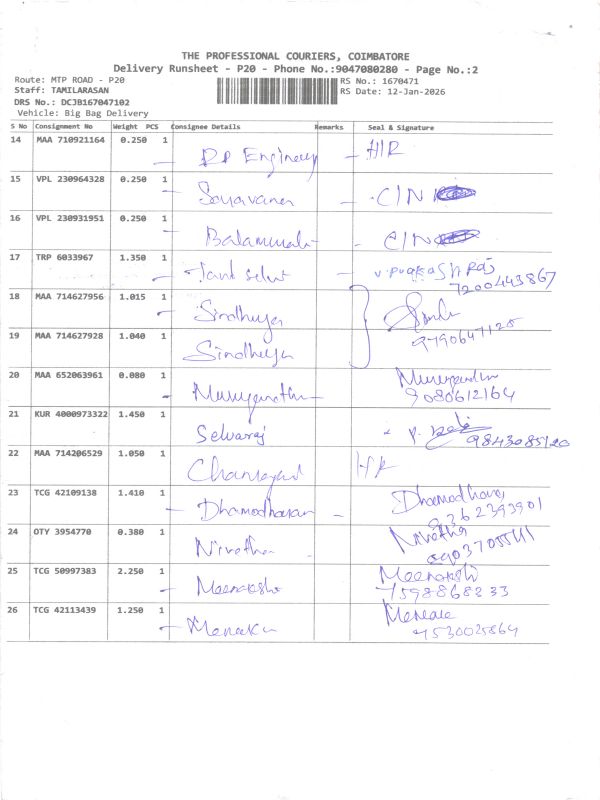 THE PROFESSIONAL COURIERS, COIMBATORE
Delivery Runsheet - P20 - Phone No.:9047080280 - Page No.:2
Route: MTP ROAD - P20 RS No.: 1670471
Staff: TAMILARASAN RS Date: 12-Jan-2026
DRS No.: DCJB167047102
Vehicle: Big Bag Delivery
S No Consignment No Weight PCS Consignee Details Remarks Seal & Signature
14 MAA 710921164 0.250 1 H/R
15 VPL 230964328 0.250 1 C/N
16 VPL 230931951 0.250 1 C/N
17 TRP 6033967 1.350 1
7200443867
18 MAA 714627956 1.015 1 Sindhuja
19 MAA 714627928 1.040 1 Sindhuja 9790647128
20 MAA 652063961 0.080 1
9080612164
21 KUR 4000973322 1.450 1 Selvaraj
22 MAA 714206529 1.050 1 H/R
23 TCG 42109138 1.410 1 Dhamodharan Dhamodharan
9362393901
24 OTY 3954770 0.380 1 Nivetha Nivetha
25 TCG 50997383 2.250 1 Meenakshi Meenakshi
7598868333
26 TCG 42113439 1.250 1 Menaka
9530025864